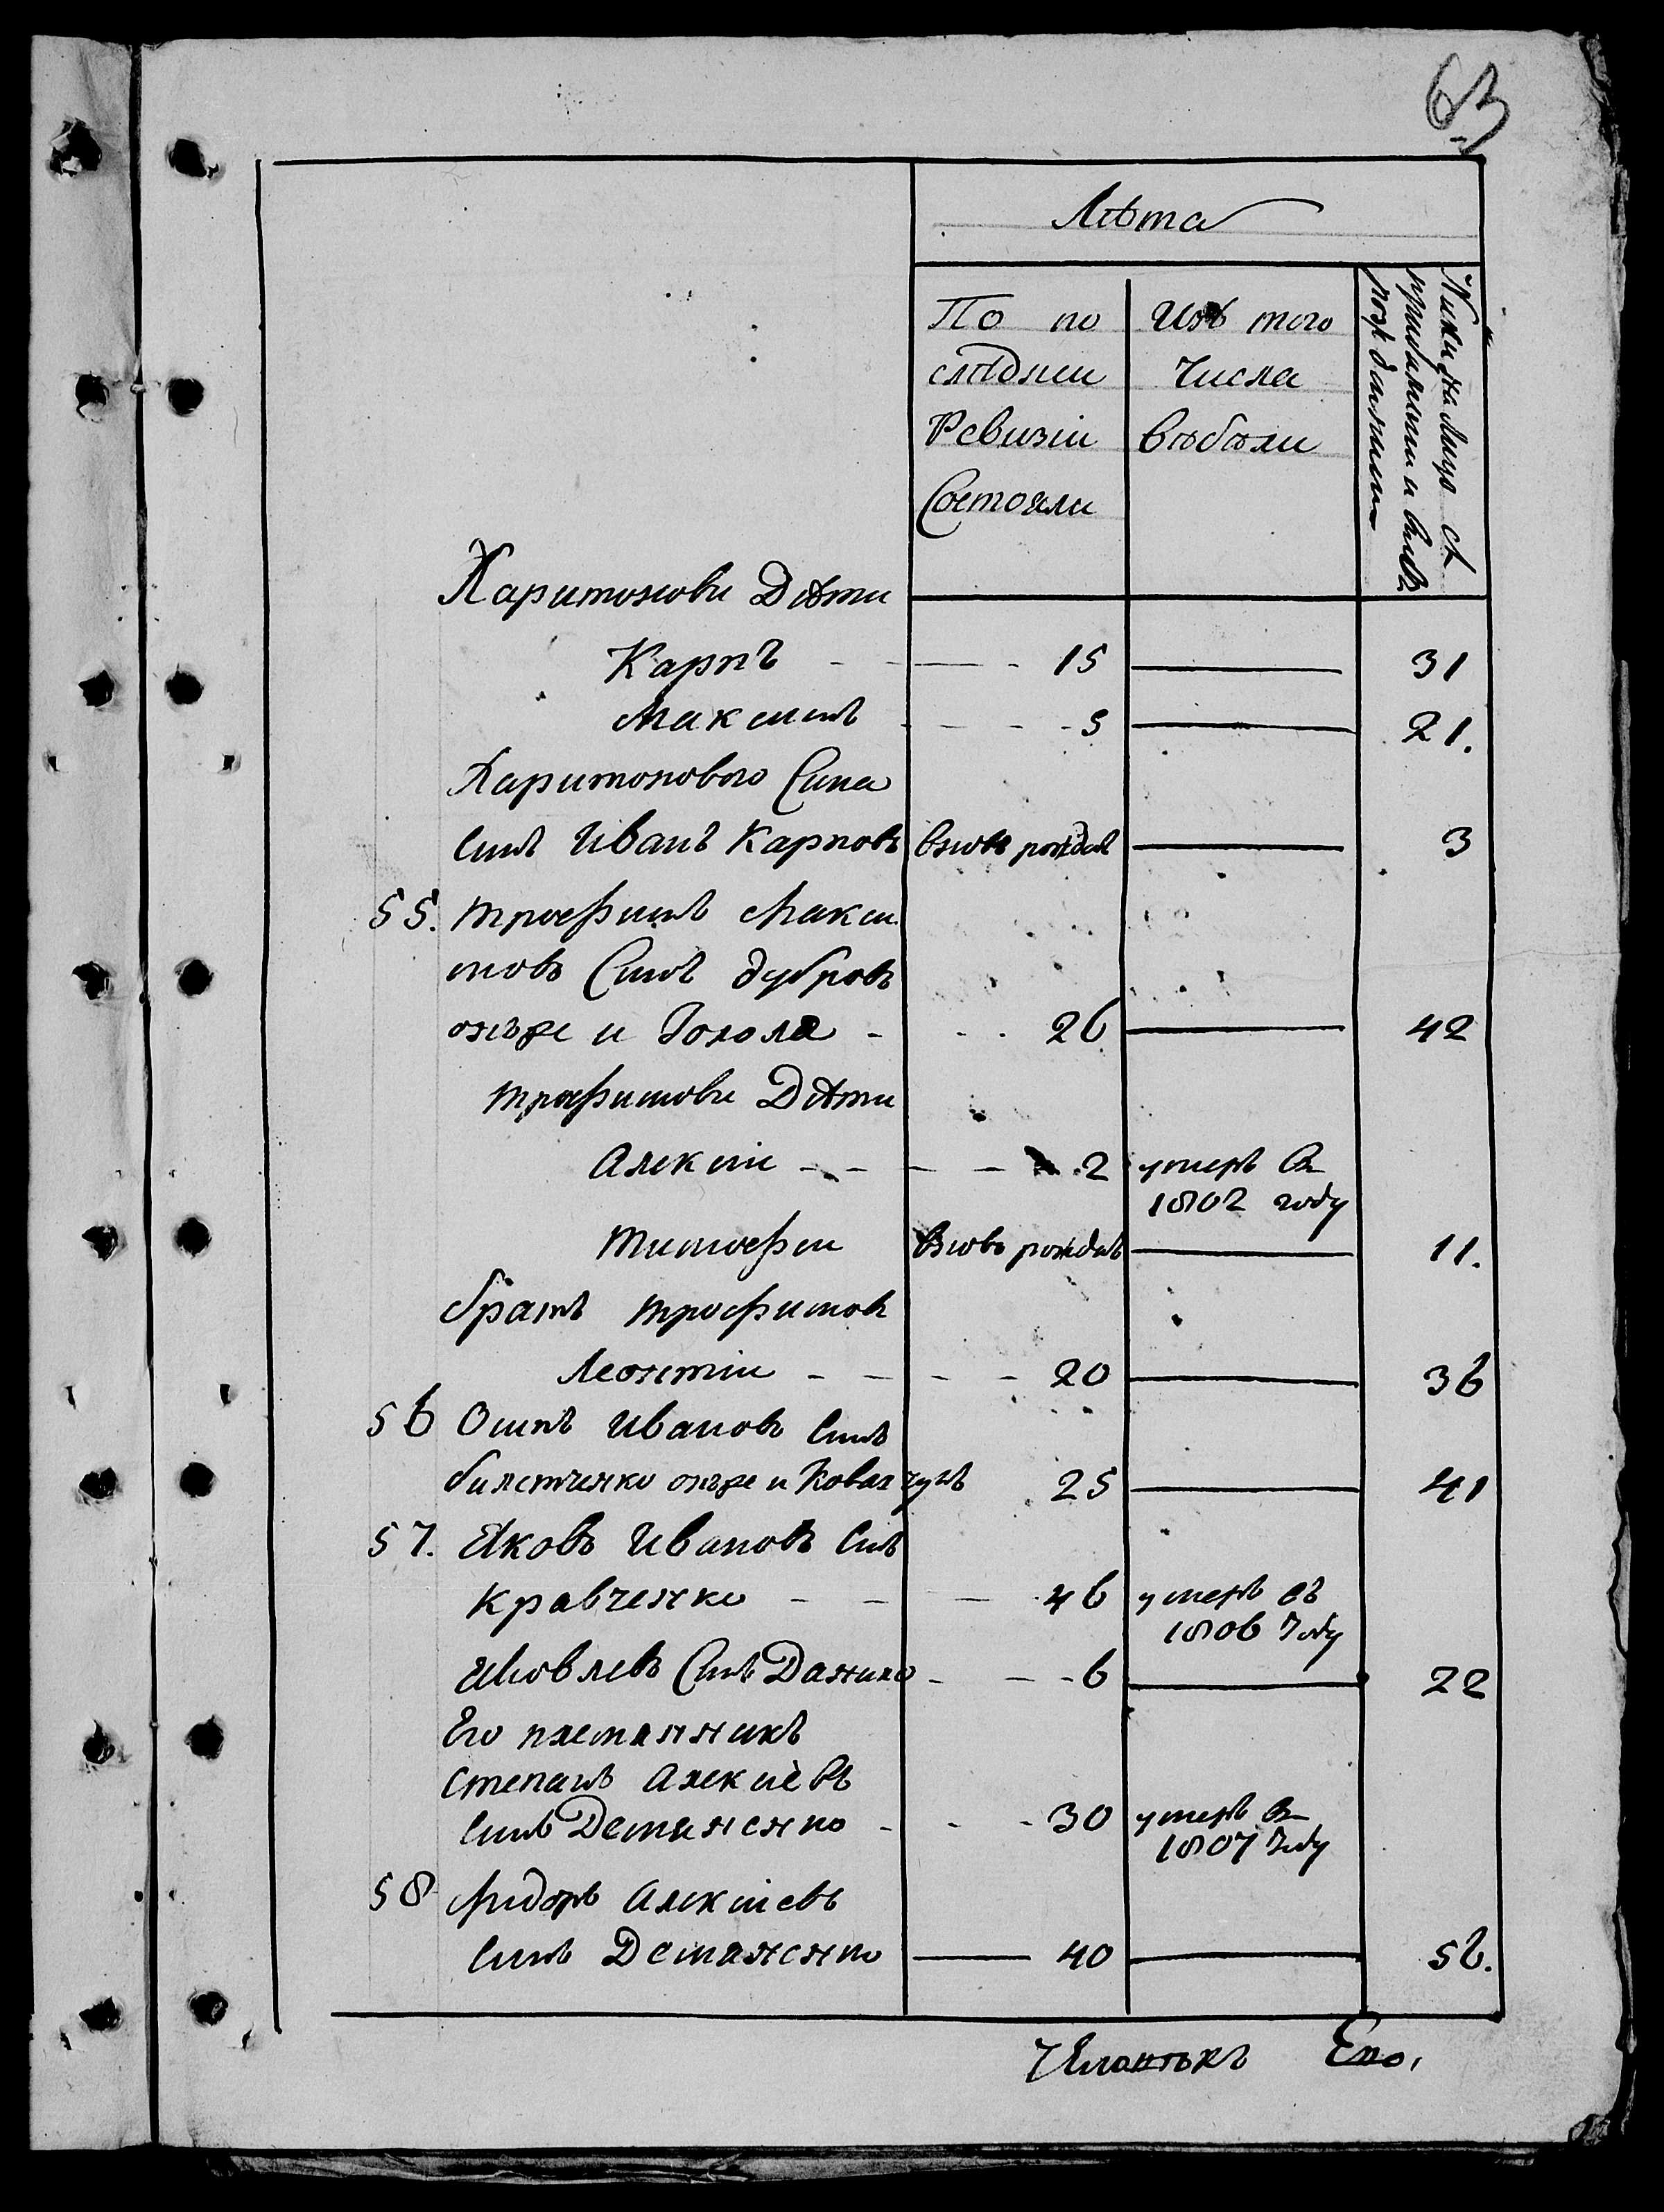 63
Лѣта
По по
слѣдней
Ревизіи
Состояли
Изъ того
Числа
выбыли
Нинѣ на лицо съ
прибилими и вновь
рожденними
Харитонови Дѣти
Карпъ - - 15 31
Максимъ - - - 5 21.
Харитонового Сина
Синъ Иванъ Карповъ вновь рожденъ 3
55. Трофимъ Макси
мовъ Синъ дубровъ
онъже и Гохола - - - 26 42
Трофимови Дѣти
Алексѣи - - - - 2 умеръ въ
1802 году
Тимофеи вновь рожденъ 11.
братъ трофимовъ
Леонтіи - - - - 20 36
56 Осипъ Ивановъ Синъ
онъже и Ковалчукъ 25 41
57. Яковъ Ивановъ Синъ
Кравченко - - - 46 умеръ въ
1806 году
Яковлевъ Синъ Данило - - - 6 22
Его племянникъ
Степанъ Алексіевъ
Синъ Демяненко - - - 30 умеръ въ
1807 году
58 Сидоръ Алексіевъ
Синъ Демяненко 40 56.